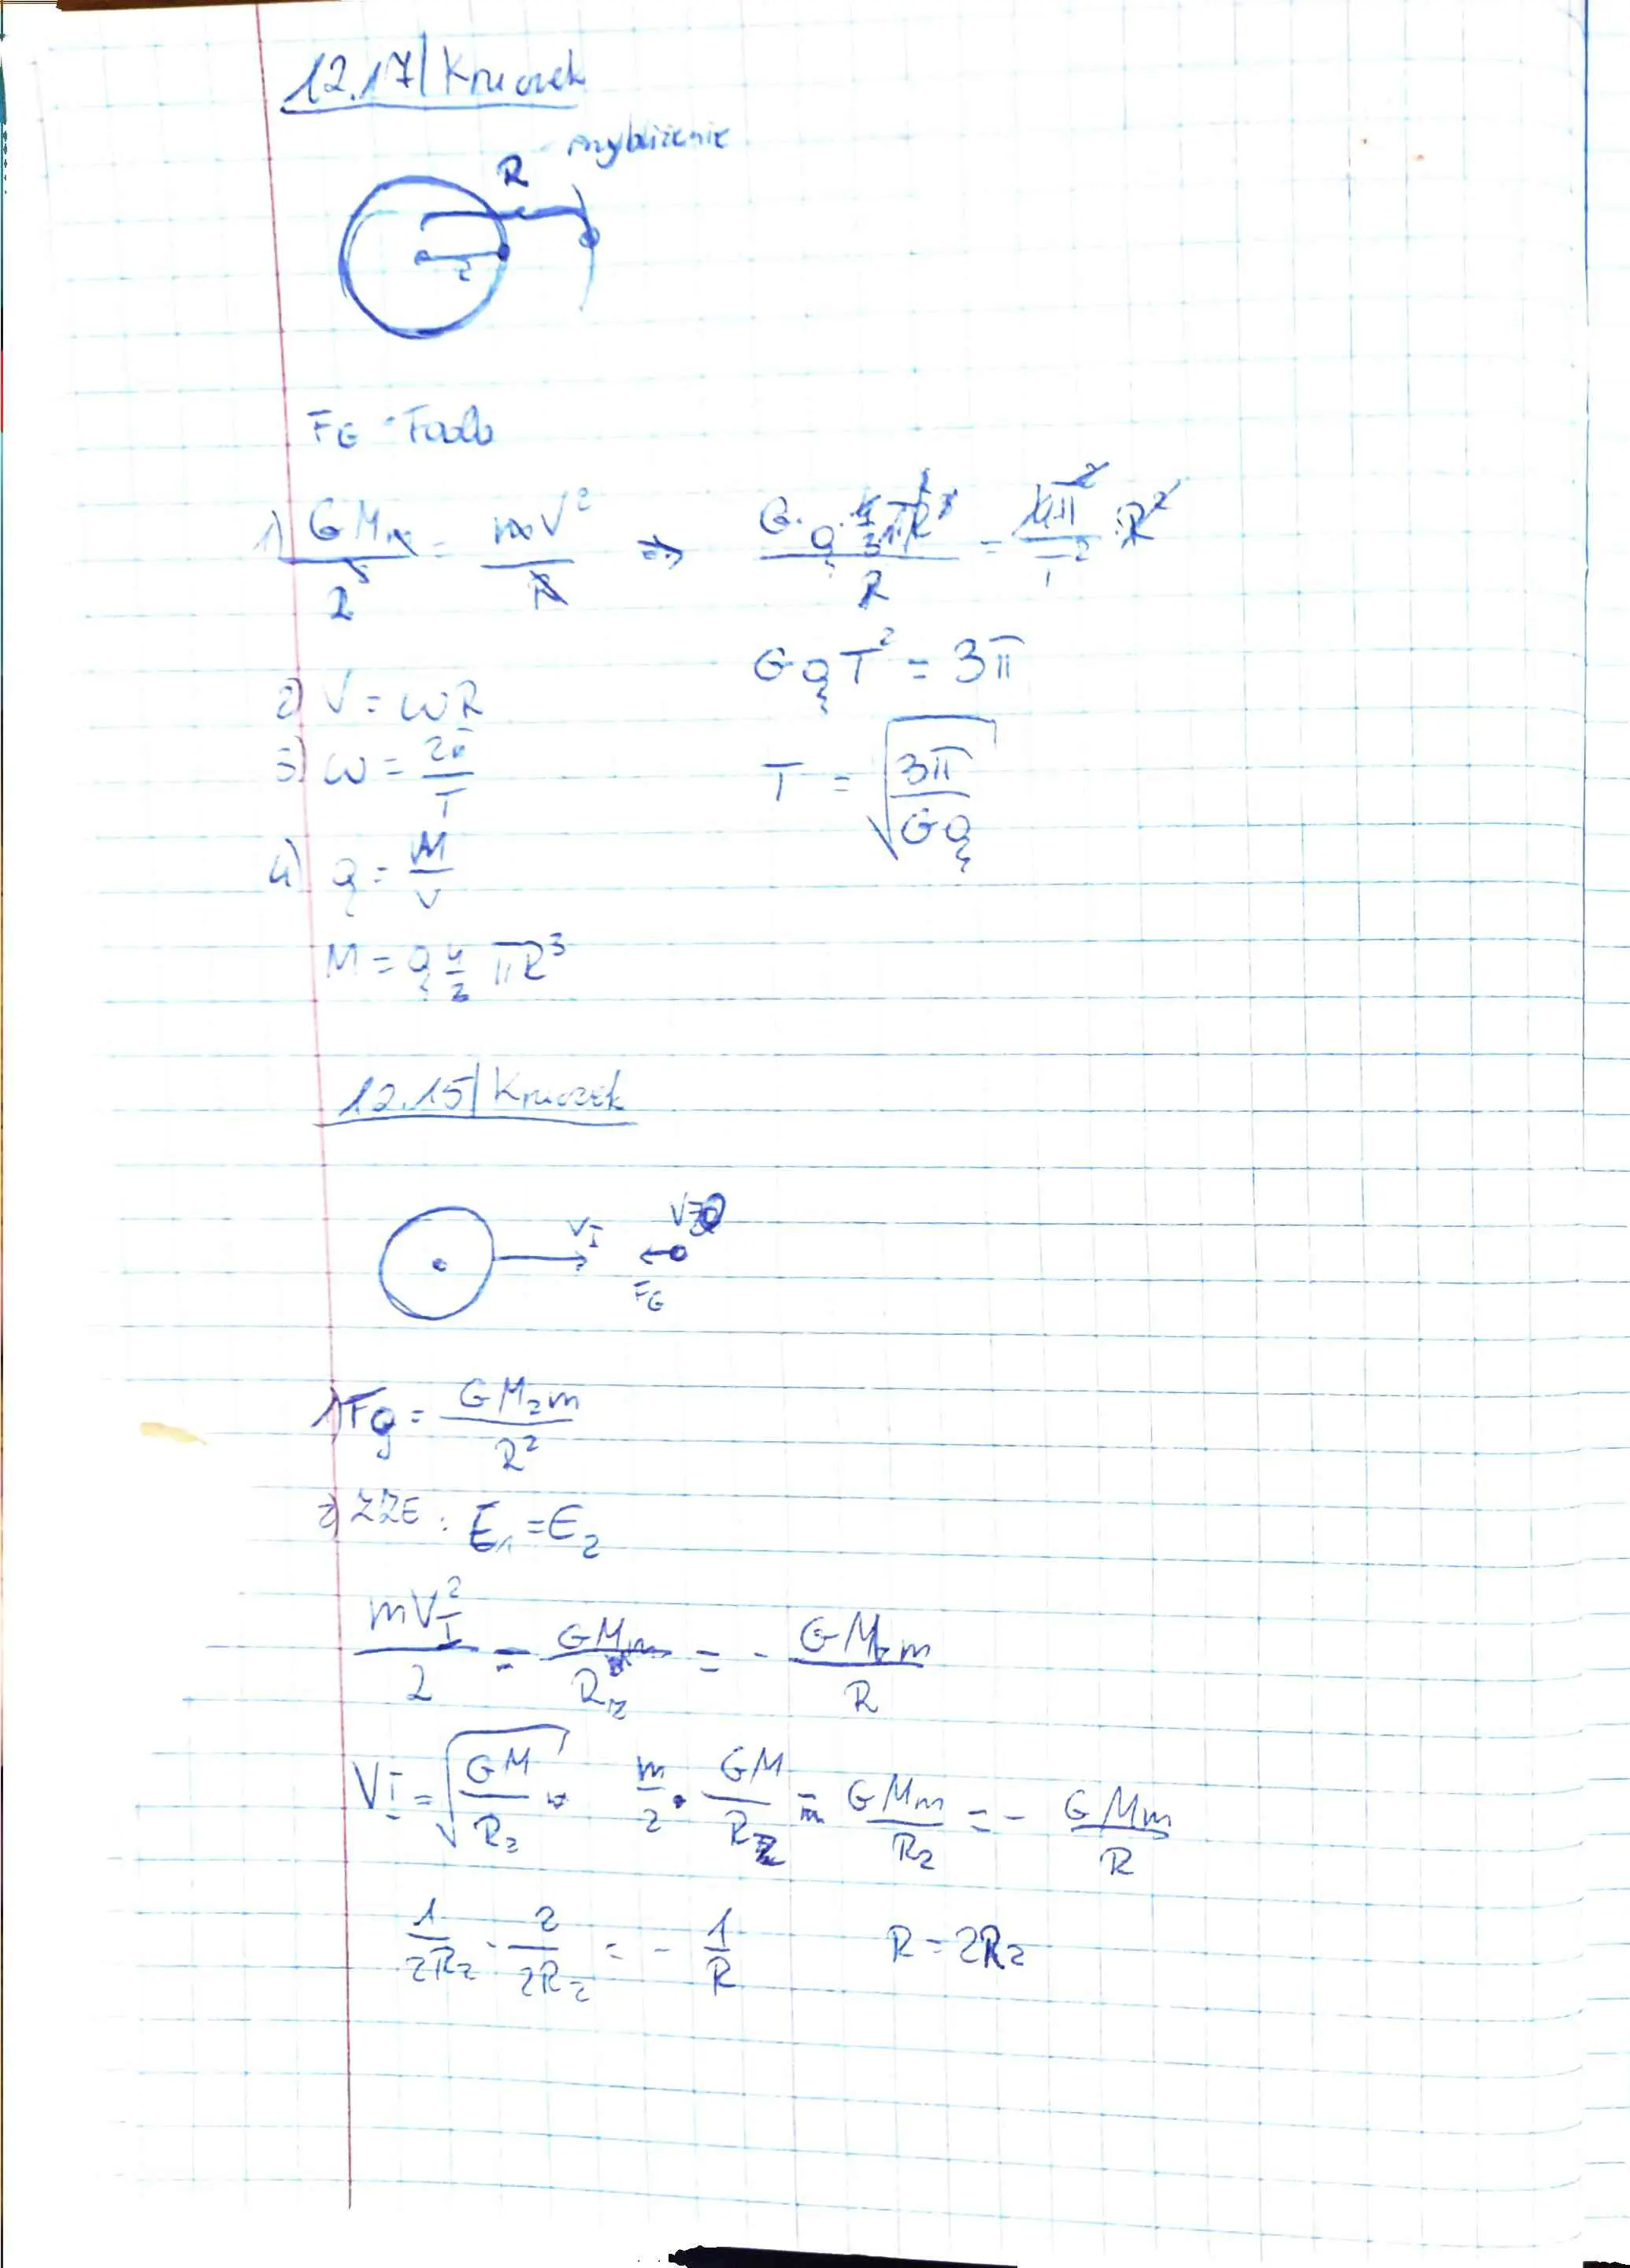 12.17| Kruczek
R - przybliżenie
r
F_G = Fodś
1) GMm/R² = mV²/R ⇒ G·ρ·4/3πR³/R = 4π²/T² · R²
GρT² = 3π
2) V = ωR
3) ω = 2π/T
T = √(3π/Gρ)
4) ρ = M/V
M = ρ 4/3 πR³
12.15| Kruczek
V_I
F_G
1) Fg = GM_zm/R²
2) ZZE: E₁ = E₂
mV_I²/2 - GMm/R_z = - GM_zm/R
V_I = √(GM/R_z) m/2 · GM/R_z - GMm/R_z = - GMm/R
1/2R_z - 2/2R_z = - 1/R R = 2R_z